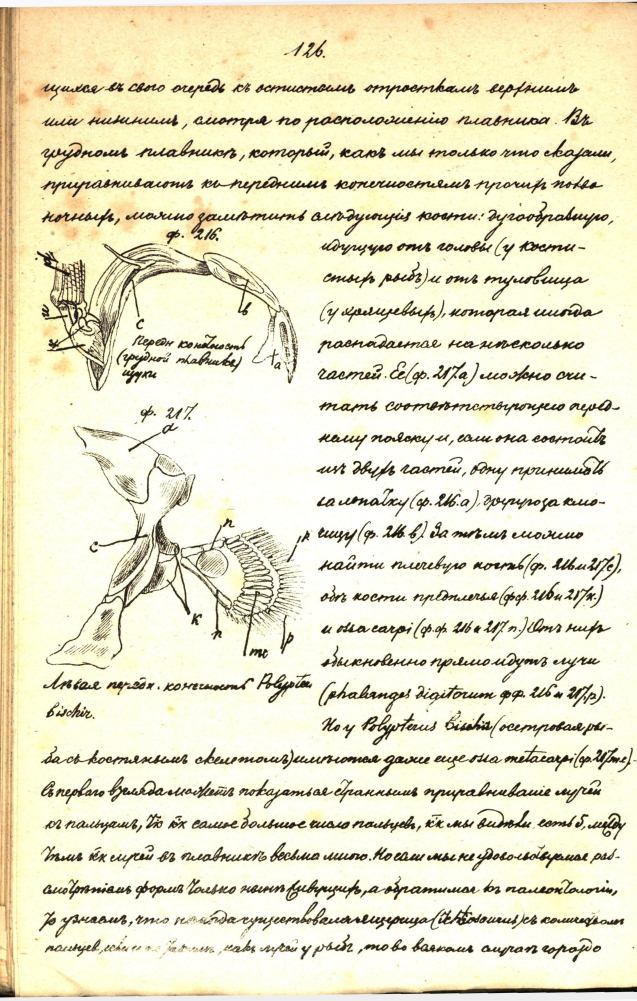 126.
щихся въ свою очередь къ остистымъ отросткамъ верхнимъ
или нижнимъ, смотря по расположенію плавника. Въ
грудномъ плавникѣ, который, какъ мы только что сказали,
приравниваютъ къ переднимъ конечностямъ прочихъ позво
ночныхъ, можно замѣтить слѣдующія кости: дугообразную,
ф. 216.
c
b
a
Передн конечность
(грудной плавникъ)
щуки
идущую отъ головы (у кости-
стыхъ рыбъ) и отъ туловища
(у хрящевыхъ), которая иногда
распадается на нѣсколько
частей. Ее (ф. 217.a) можно счи-
тать соотвѣтствующею перед-
нему пояску и, если она состоитъ
изъ двухъ частей, одну принимать
за лопатку (ф. 216.a), другую за клю-
чицу (ф. 216.b). За тѣмъ можно
найти плечевую кость (ф. 216 и 217c),
обѣ кости предплечья (фф. 216 и 217к.)
и ossa carpi (фф. 216 и 217.n.) Отъ нихъ
обыкновенно прямо идутъ лучи
(phalanges digitorum фф. 216 и 217.p).
Но у Polypterus bischir (осетровая ры-
ф. 217.
a
c
n
p
к
n
mc
p
Лѣвая передн. конечность Polypterus
bischir.
ба съ костянымъ скелетомъ) имѣются даже еще ossa metacarpi (ф. 217mc).
Съ перваго взгляда можетъ показаться страннымъ приравниваніе лучей
къ пальцамъ, тк кк самое большое число пальцевъ, кк мы видѣли есть 5, между
тѣмъ кк лучей въ плавникѣ весьма много. Но если мы не удовольствуемся раз-
смотрѣніемъ формъ только нынѣ живущихъ, а обратимся къ палеонтологіи,
то узнаемъ, что некогда существовала ящерица (Ichtiosaurus) съ количествомъ
пальцевъ, если и не такимъ, какъ лучей у рыбъ, то во всякомъ случаѣ гораздо